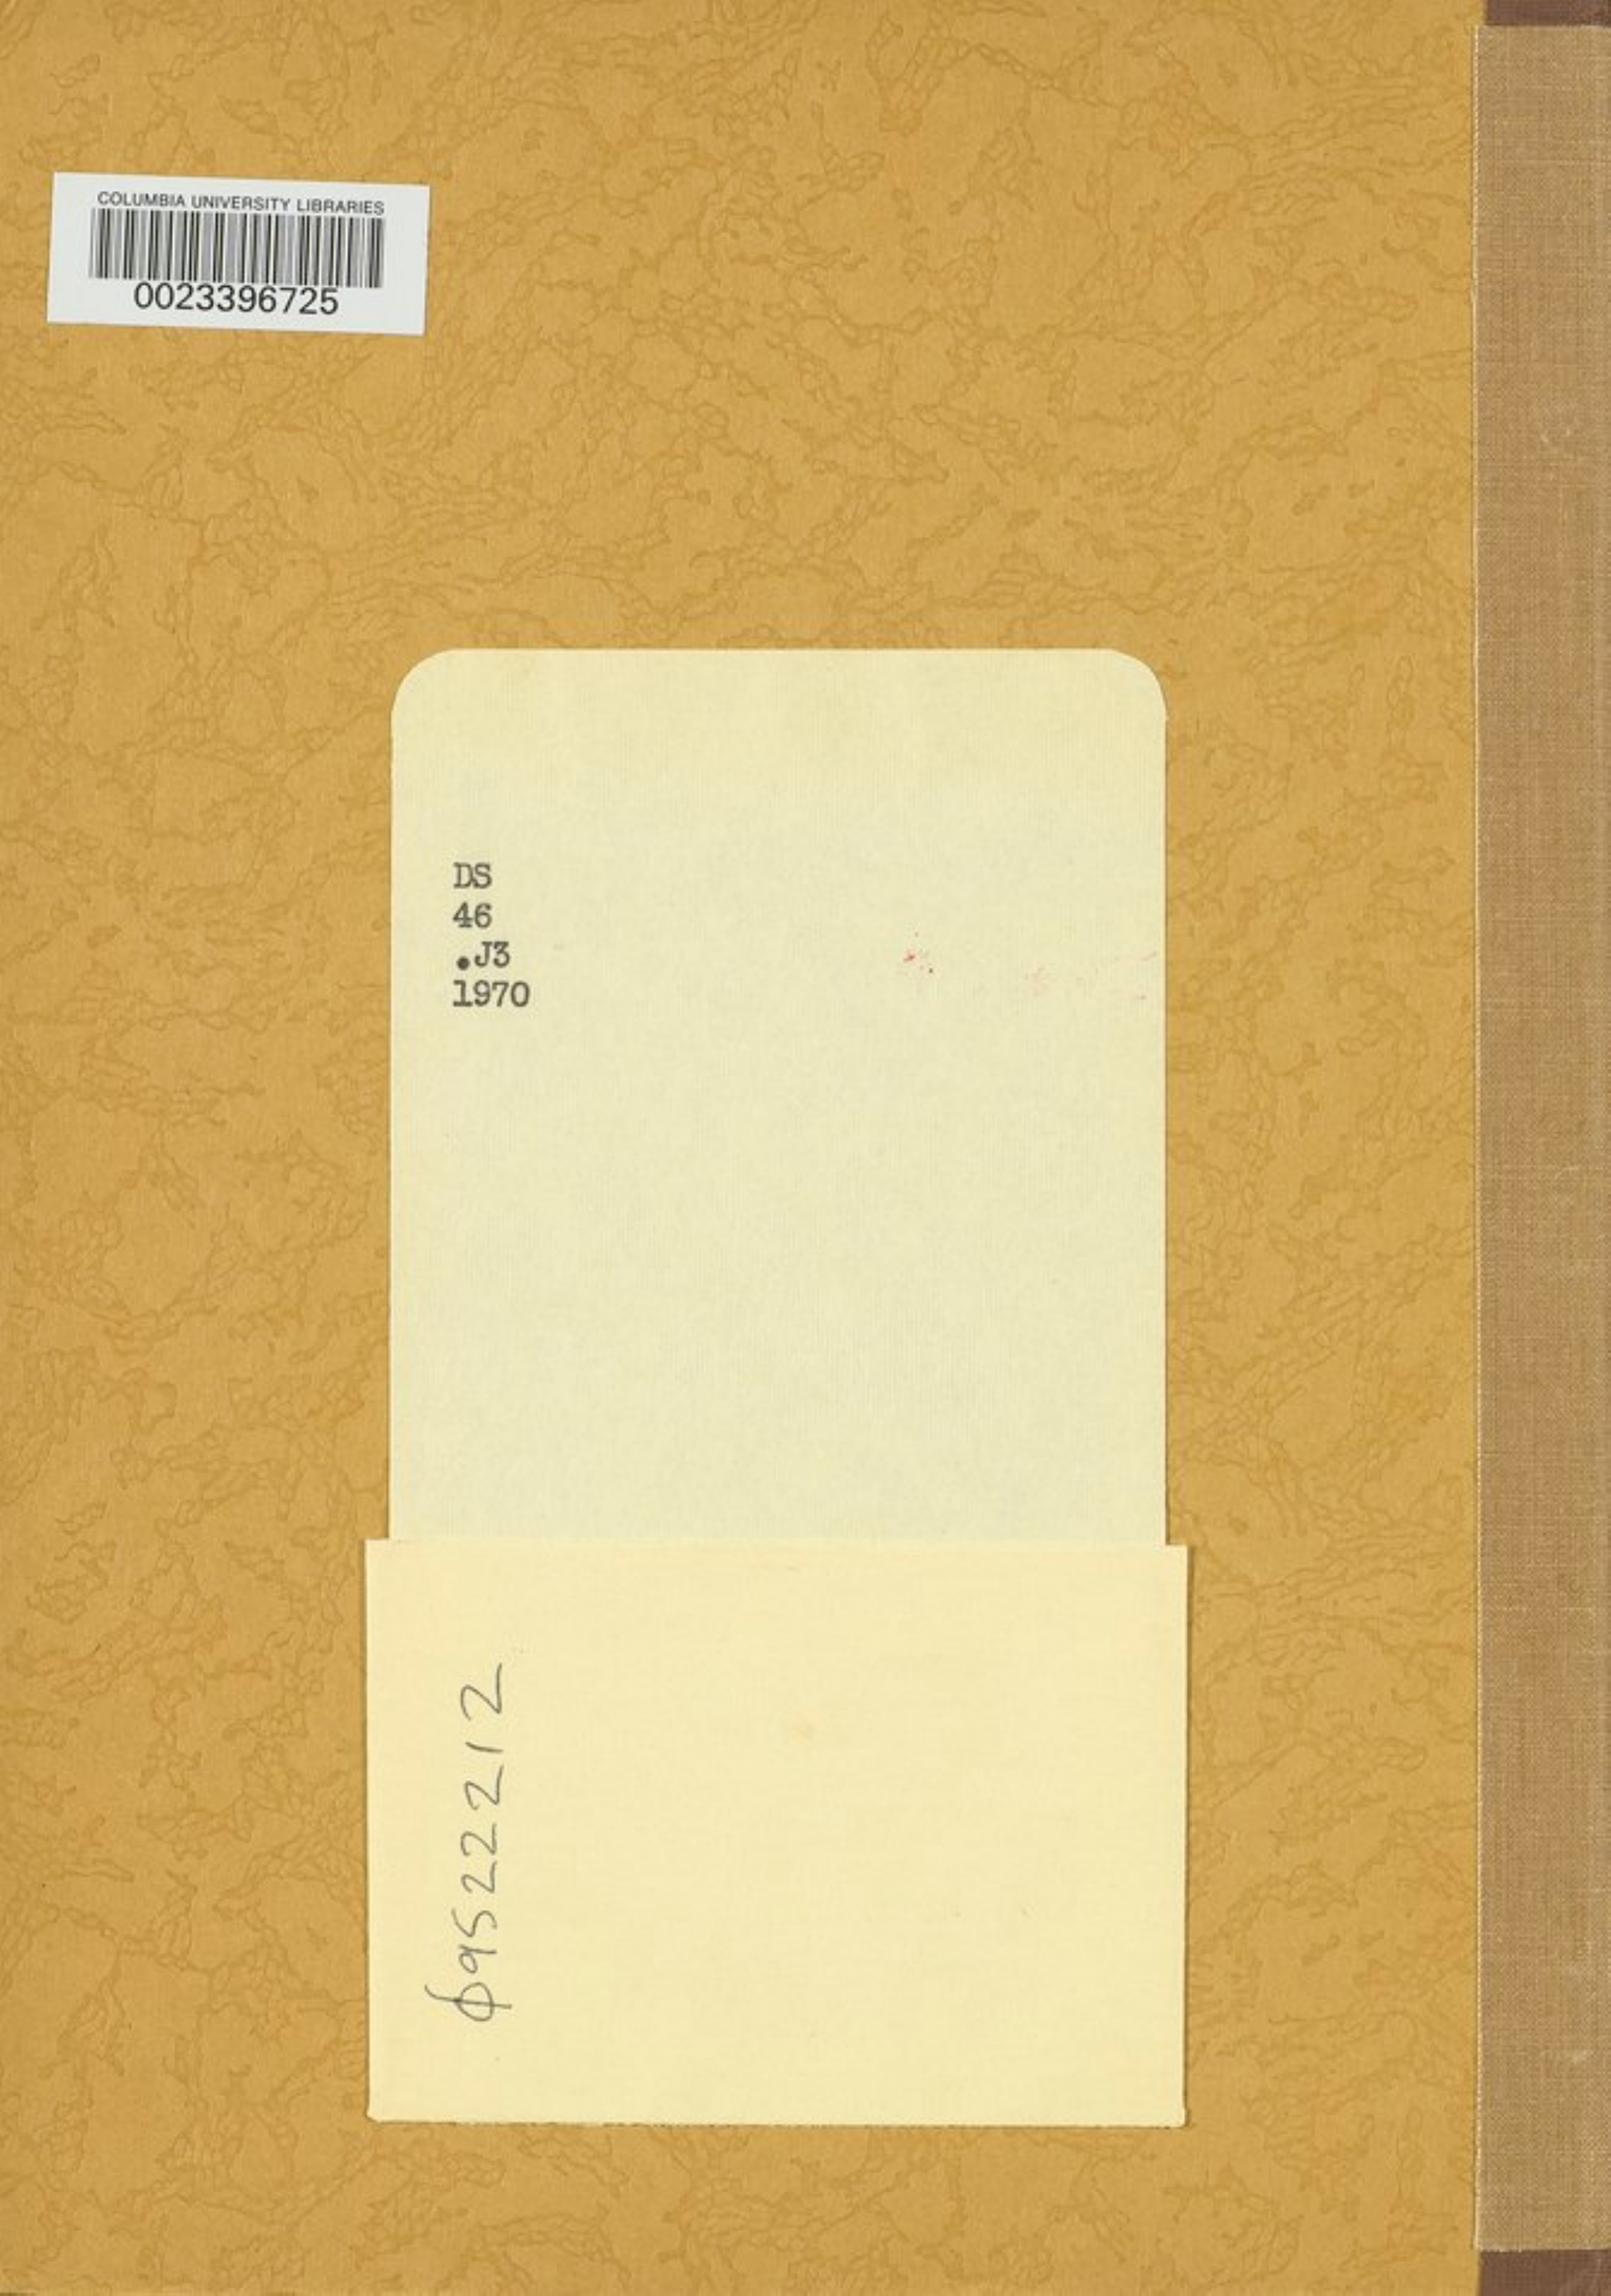 COLUMBIA UNIVERSITY LIBRARIES
0023396725
DS
46
.J3
1970
09522212